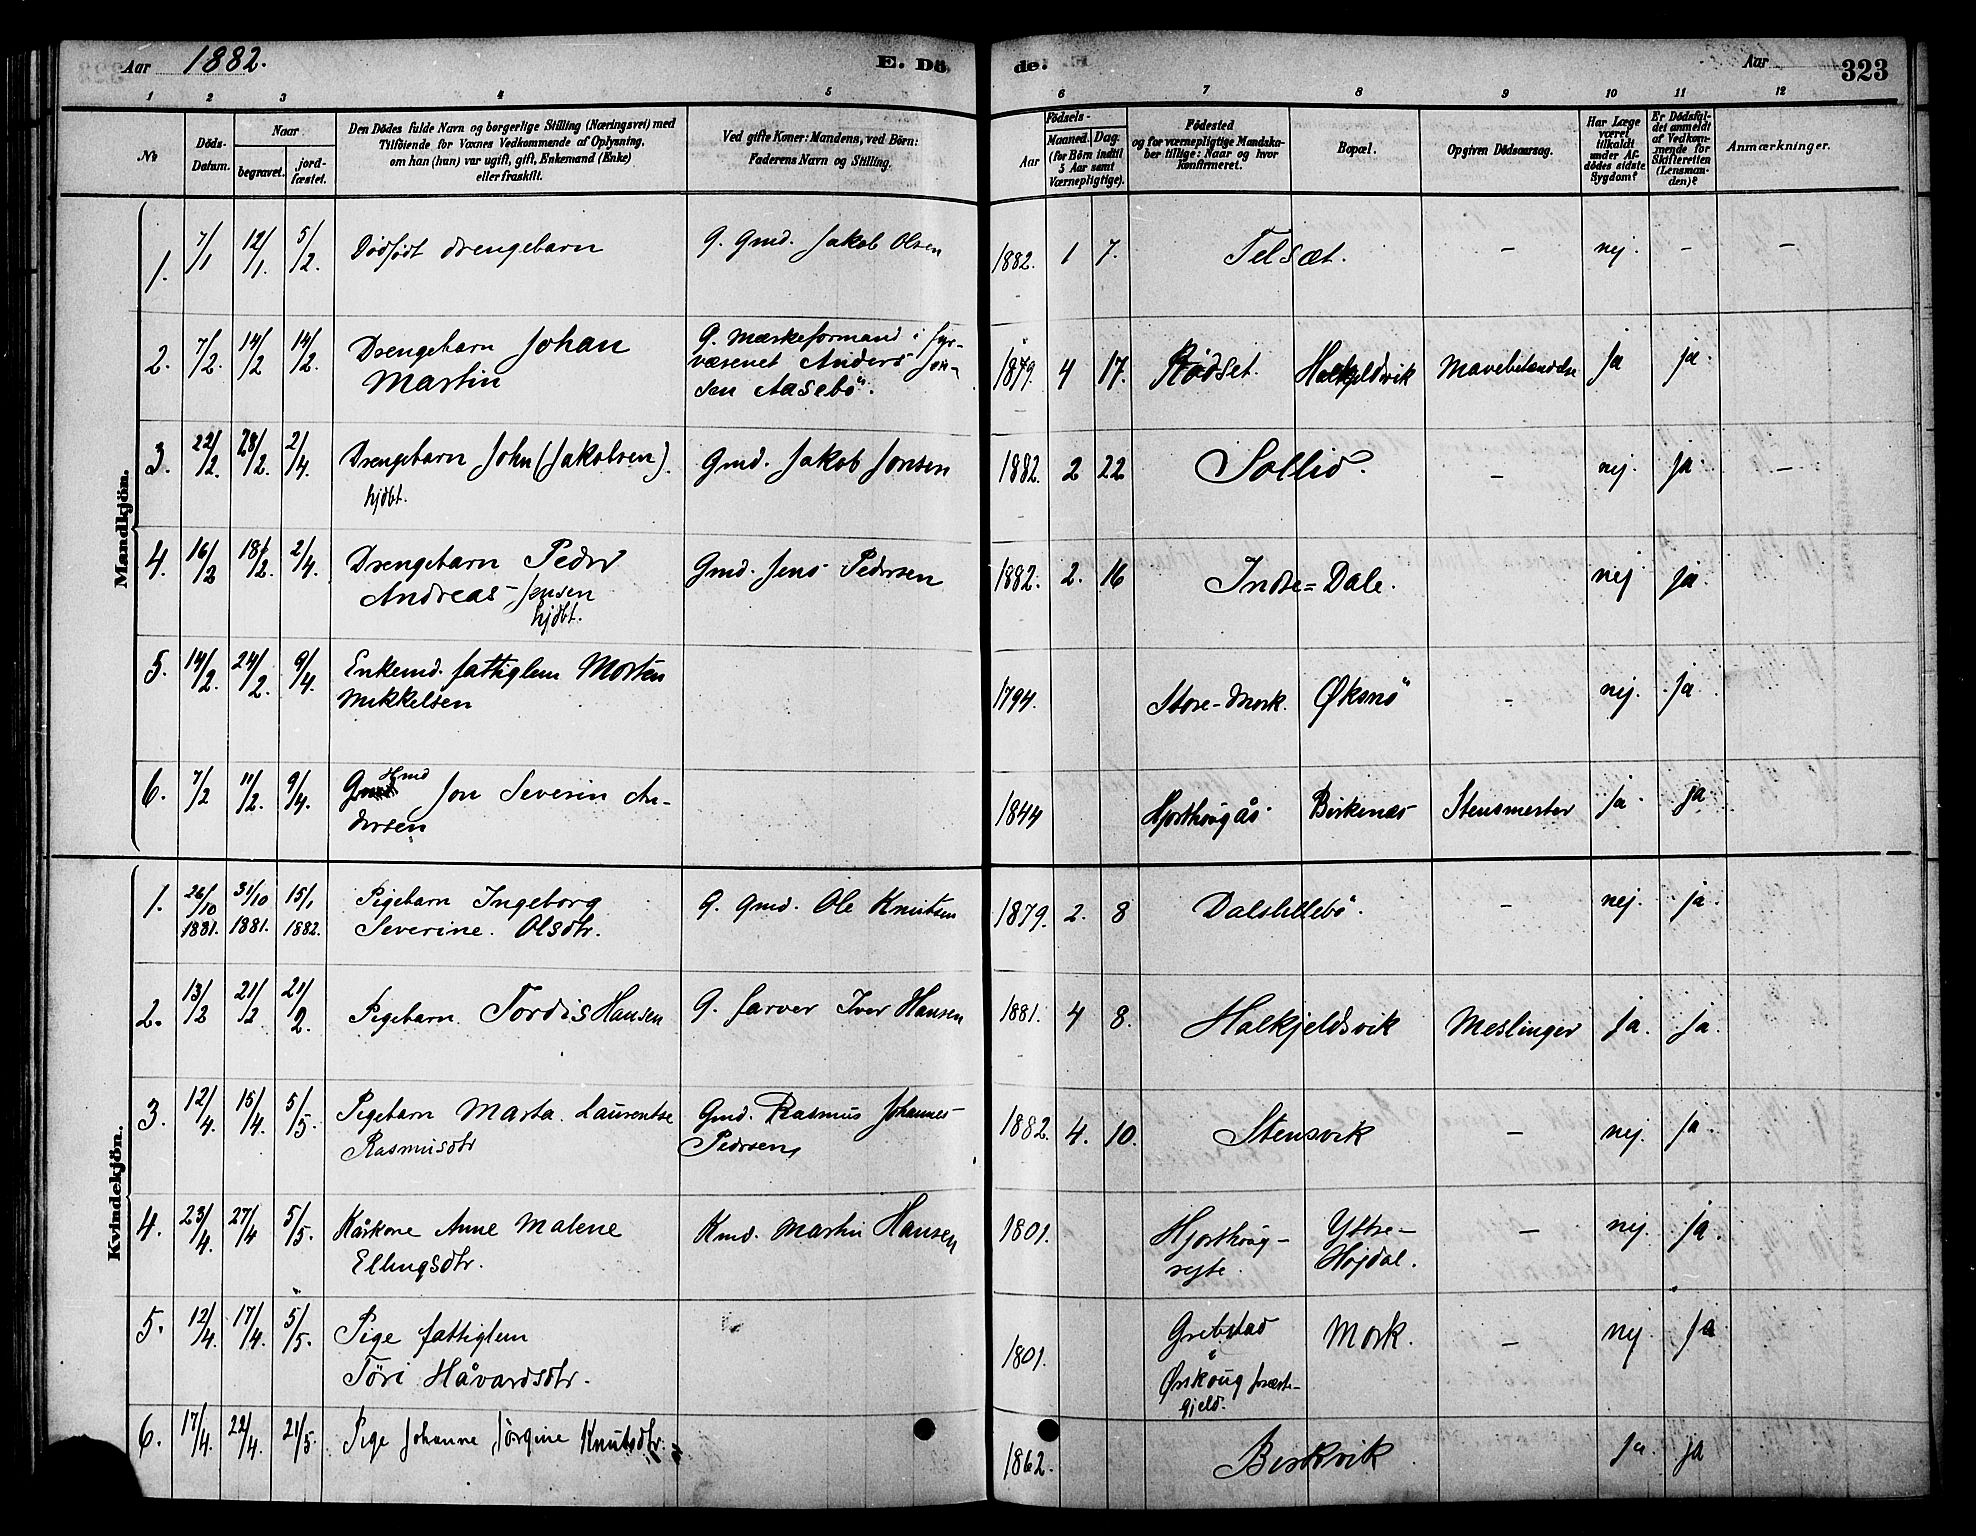 Aar 1882. E. Dö de. Aar 323
1 2 3 4 5 6 7 8 9 10 11 12
No
Döds-
Datum.
Naar
begravet.
jord-
fæstet.
Den Dödes fulde Navn og borgerlige Stilling (Næringsvei) med
Tilföiende for Voxnes Vedkommende af Oplysning,
om han (hun) var ugift, gift, Enkemand (Enke)
eller fraskilt.
Ved gifte Koner: Mandens, ved Börn:
Faderens Navn og Stilling.
Födsels-
Aar
Maaned. Dag.
(for Börn indtil
5 Aar samt
Værnepligtige).
Födested
og for værnepligtige Mandska-
ber tillige: Naar og hvor
Konfirmeret.
Bopæl.
Opgiven Dödsaarsag.
Har Læge
været
tilkaldt
under Af-
dödes sidste
Sygdom?
Er Dödsfal-
det anmeldt
af Vedkom-
mende for
Skifteretten
(Lensman-
den)?
Anmærkninger.
Mandkjön.
1. 7/1 12/1. 5/2. Dødfødt drengebarn G. Gmd. Jakob Olsen 1882. 1 7. Telsæt. - nej. - -
2. 7/2. 14/2 14/2. Drengebarn Johan
Martin
G. Mærkeformand i fyr-
væsenet Anders Jon-
sen Aasebö.
1879. 4 17. Rödset. Halkjeldsvik Mavebetændelse ja ja.
3. 22/2. 28/2. 2/4. Drengebarn John (Jakobsen).
hjdbt.
Gmd. Jakob Jonsen 1882. 2 22 Sollid. - nej. ja. -
4. 16/2 18/2. 2/4. Drengebarn Peder
Andreas Jensen
hjdbt.
Gmd. Jens Pedersen 1882. 2. 16 Indre=Dale. nej. ja.
5. 14/2. 24/2. 9/4. Enkemd. fattiglem Morten
Mikkelsen
1794. Store-Mork. Øksnö - nej. ja.
6. 7/2 11/2. 9/4. Hmd
Jon Severin An-
dersen
1844 Hjorthougås Birkenæs Stensmerter ja. ja.
Kvindekjön.
1. 26/10 31/10 15/1
1881. 1881. 1882.
Pigebarn Ingeborg
Severine. Olsdtr.
G. Gmd. Ole Knutsen 1879. 2. 8 Dalslillebö. - nej. ja.
2. 13/2 21/2 21/2. Pigebarn. Tordis Hansen G. farver Iver Hansen 1881. 4 8. Halkjeldsvik Meslinger ja. ja.
3. 12/4. 15/4. 5/5. Pigebarn Marta. Laurentse
Rasmusdtr
Gmd. Rasmus Johannes
Pedersen,
1882. 4. 10. Stensvik - nej. ja.
4. 23/4. 27/4 5/5. Kårkone Anne Malene
Ellingsdtr.
Kmd. Martin Hansen 1801. Hjorthoug-
reyte.
Ytre-
Højdal.
- nej. ja.
5. 12/4. 17/4. 5/5. Pige fattiglem
Töri Håvardsdtr.
1801. Grebstad
i
Ørskoug præste-
gjeld.
Mork. - nej. ja
6. 17/4. 22/4. 21/5. Pige Johanne Jørgine Knutsdtr. 1862. Birkvik ja. ja